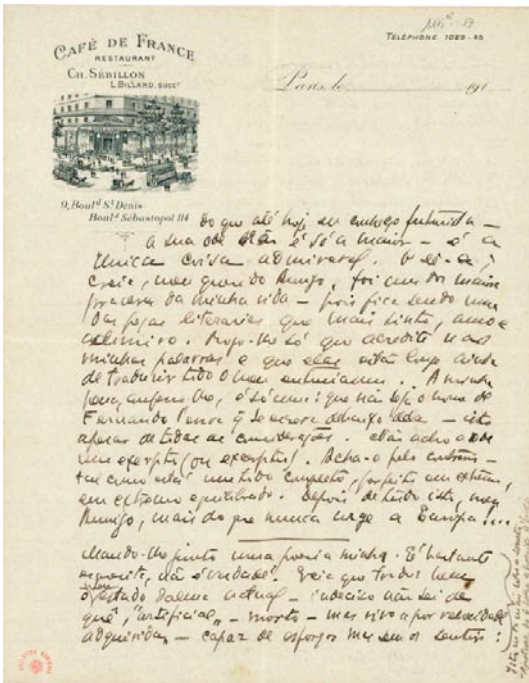 TELEPHONE 1029-45
CAFÉ DE FRANCE
RESTAURANT
CH. SÉBILLON
L. BILLARD, SUCCr
Paris, le 191
9, Bould St Denis
Bould Sébastopol 114
do que até hoje eu conheço futurista —
a sua ode não é só a maior — é a
unica coisa admiravel. O
creia, meu querido Amigo, foi um dos maiores
prazeres da minha vida — pois fica sendo uma
das peças literarias que mais sinto, amo e
só que acredite nas
minhas palavras e que elas estão longe ainda
de traduzir todo o meu entusiasmo. A minha
pena, é só uma: que não seja o nome de
Fernando Pessoa q se escreva debaixo dela — isto
apesar de todas as considerações. Não acho a ode
um excerpto (ou excerptos). Acho-o pelo contrario —
tal como está um todo completo, perfeito em extremo,
em extremo equilibrado. Depois de tudo isto, meu
Amigo, mais do que nunca urge a Europa!...
Mando-lhe junto uma poesia minha. É bastante
esquisita, não é verdade? Creio que traduz bem
o estado actual — indeciso não sei de
quê, "artificial" — morto — mas vivo por velocidade
adquirida — capaz de esforços mas sem os sentir: